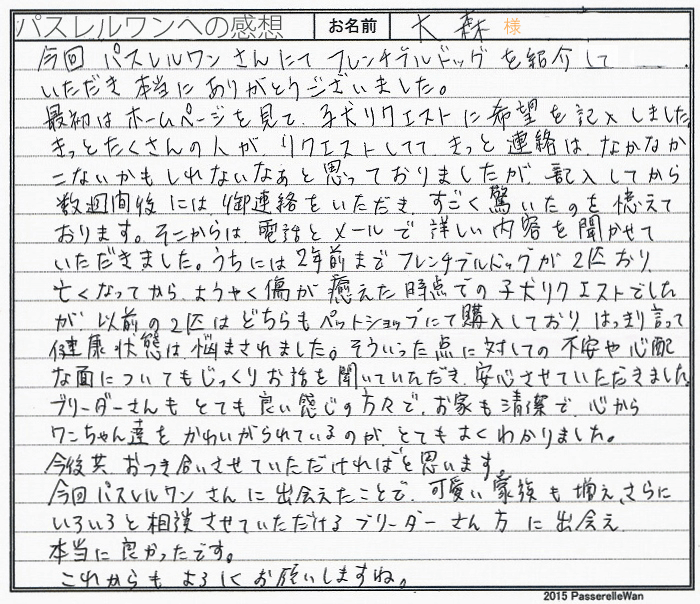 パスレルワンへの感想 お名前 大森 様
今回 パスレルワン さんにて フレンチブルドッグ を紹介して
いただき 本当に ありがとうございました。
最初は ホームページを見て、子犬リクエスト に 希望 を 記入しました。
きっとたくさんの人が リクエストしてて きっと 連絡は、なかなか
こないかもしれないなぁと思っておりましたが、記入してから
数週間後 には 御連絡 を いただき、すごく 驚いた のを 憶えて
おります。そこからは、電話とメールで 詳しい 内容 を 聞かせて
いただきました。うちには 2年前まで フレンチブルドッグが 2匹 おり、
亡くなってから、ようやく 傷が 癒えた 時点での 子犬リクエストでした
が、以前の2匹は どちらも ペットショップにて購入しており、はっきり言って
健康状態は、悩まされました。そういった点に対しての 不安や心配
な面についても じっくり お話を聞いていただき、安心させていただきました。
ブリーダーさんも とても 良い感じの 方々で、お家も 清潔で、心から
ワンちゃん達を かわいがられているのが、とても よく わかりました。
今後共、おつき合いさせていただければと思います。
今回 パスレルワン さんに 出会えたことで、可愛い 家族 も 増え、さらに
いろいろと 相談 させていただける ブリーダー さん 方 に 出会え、
本当に 良かったです。
これからも よろしく お願いしますね。
2015 PasserelleWan